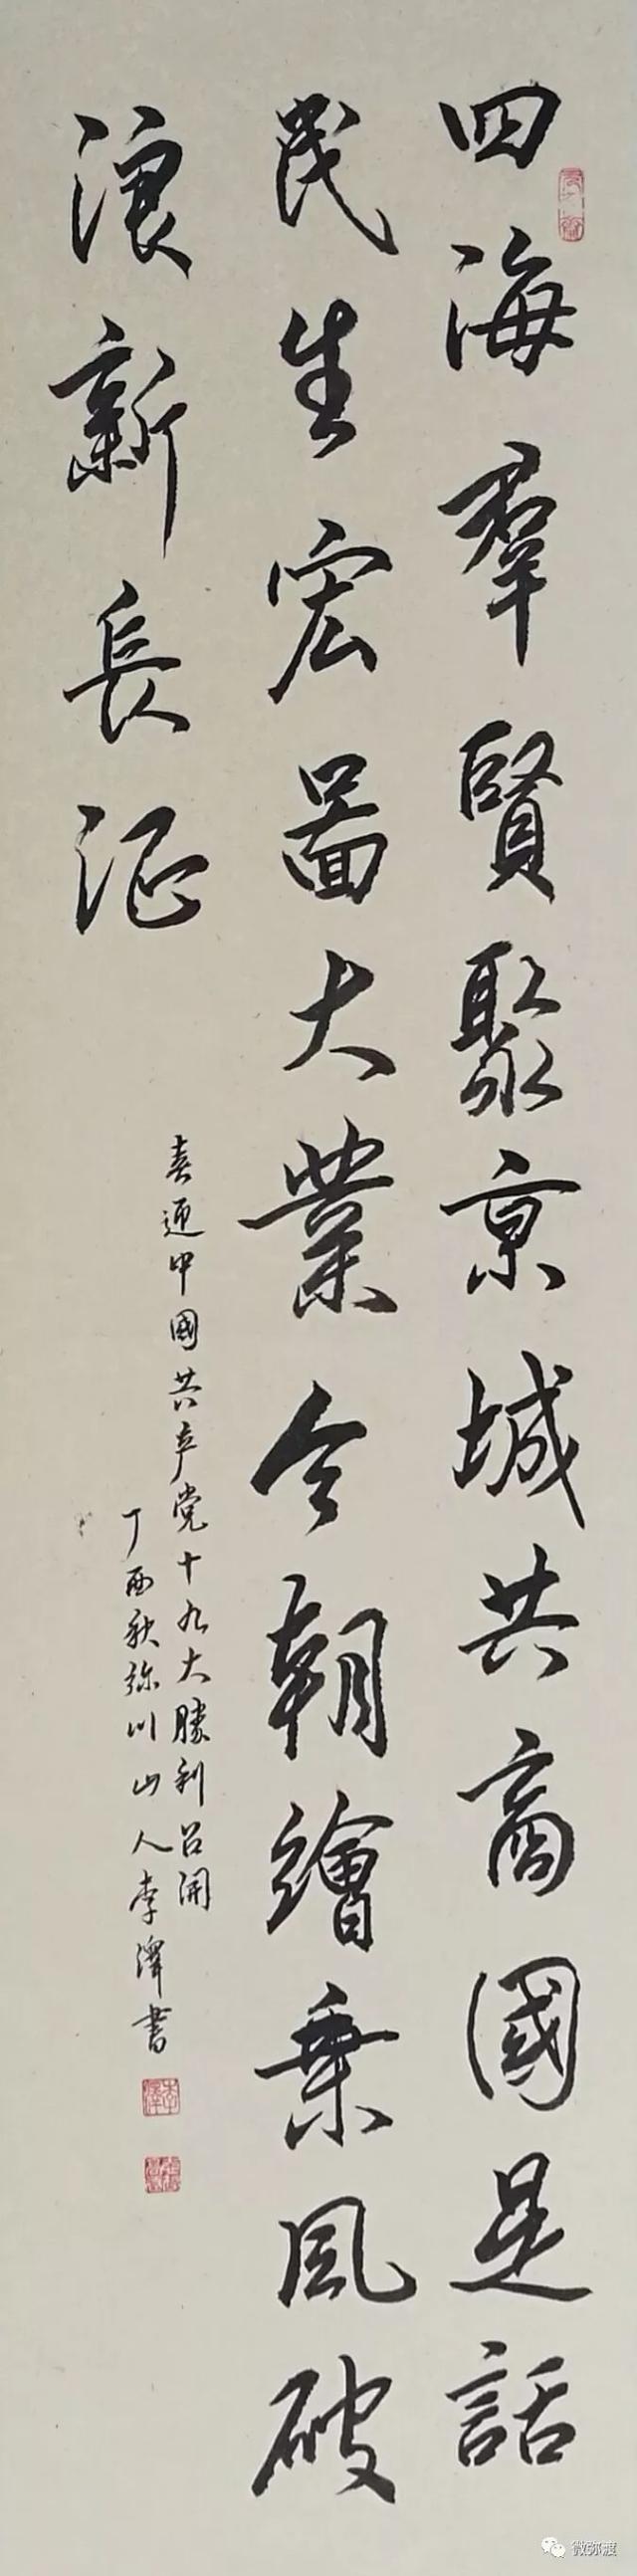 四海群賢聚京城共商國是話
民生宏圖大業今朝繪乘风破
浪新長征
喜迎中國共产党十九大勝利召開
丁酉秋弥川山人李澤書
李澤
微弥渡